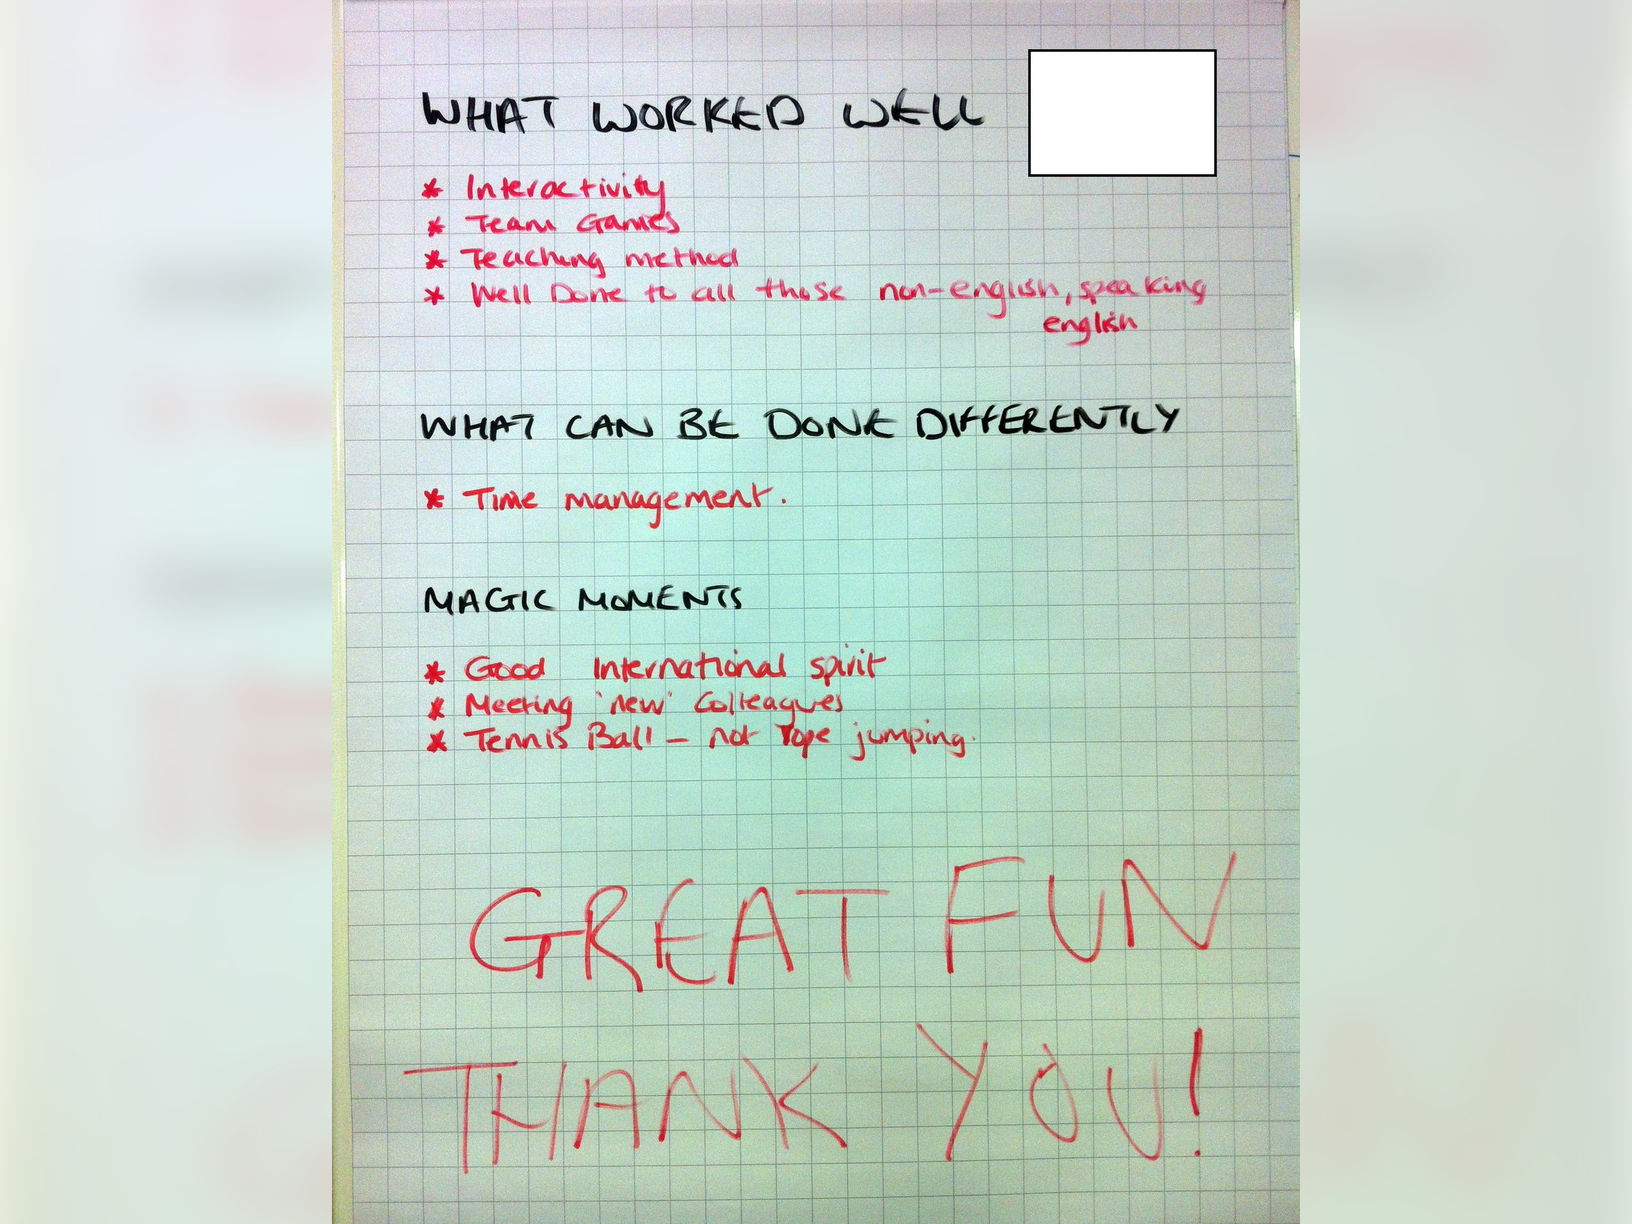 WHAT WORKED WELL
* Interactivity
* Team Games
* Teaching method
* Well Done to all those non-english, speaking
english
WHAT CAN BE DONE DIFFERENTLY
* Time management.
MAGIC MOMENTS
* Good International spirit
* Meeting 'new' Colleagues
* Tennis Ball - not rope jumping.
GREAT FUN
THANK YOU!